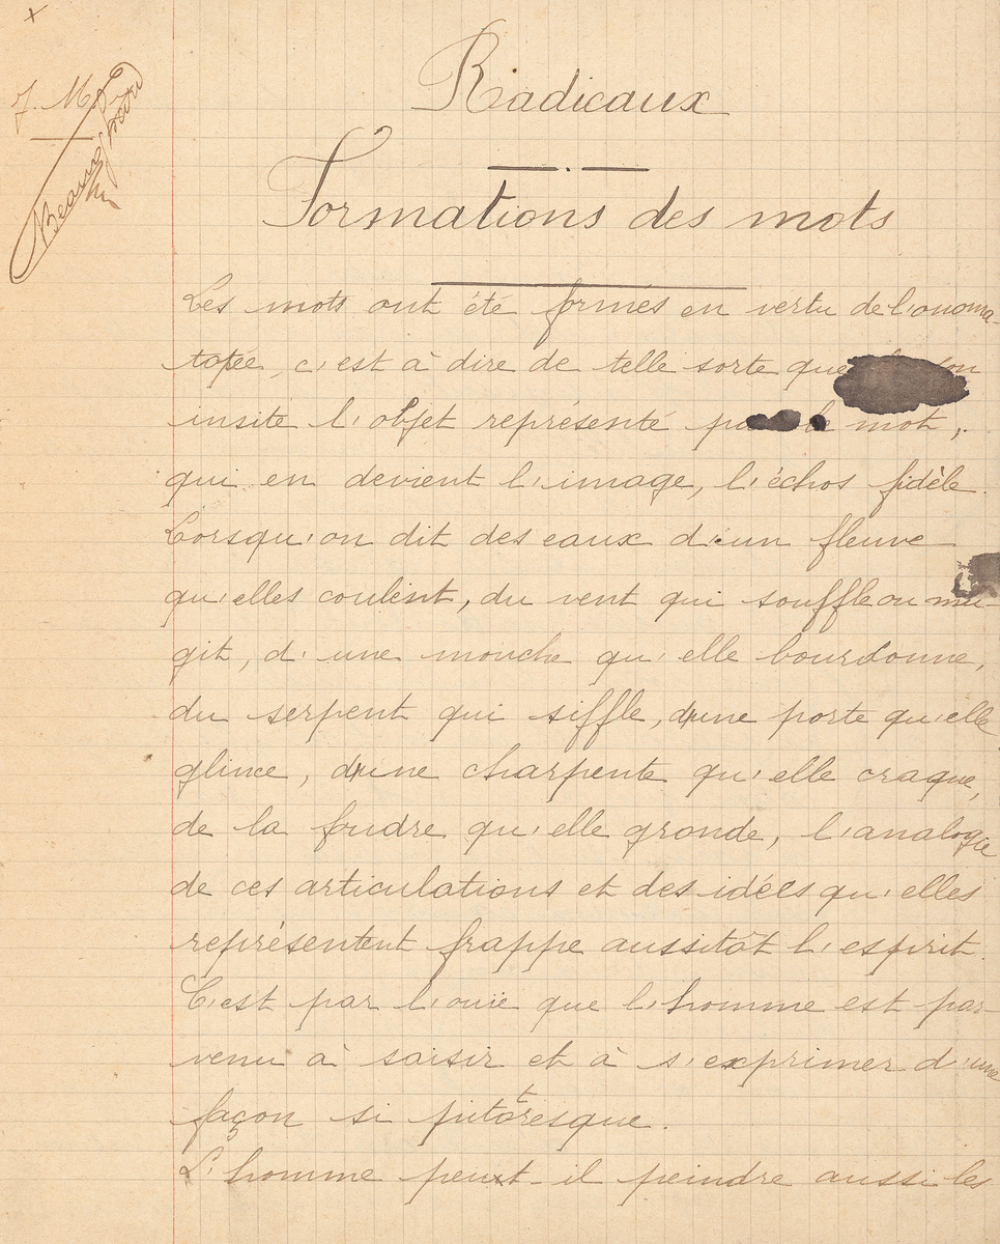 J. M.
Radicaux
Formations des mots
Les mots ont été formés en vertu de l'onoma-
topée, c'est à dire de telle sorte que son
insite l'objet représenté par le mot,
qui en devient l'image, l'échos fidèle.
Lorsqu'on dit des eaux d'un fleuve
qu'elles coulent, du vent qui souffle ou mu-
git, d'une mouche qu'elle bourdonne,
du serpent qui siffle, d'une porte qu'elle
glince, d'une charpente qu'elle craque,
de la foudre qu'elle gronde, l'analogie
de ces articulations et des idées qu'elles
représentent frappe aussitôt l'esprit.
C'est par l'ouïe que l'homme est par-
venu à saisir et à s'exprimer d'une
façon si pittoresque.
L'homme peut-il peindre aussi les